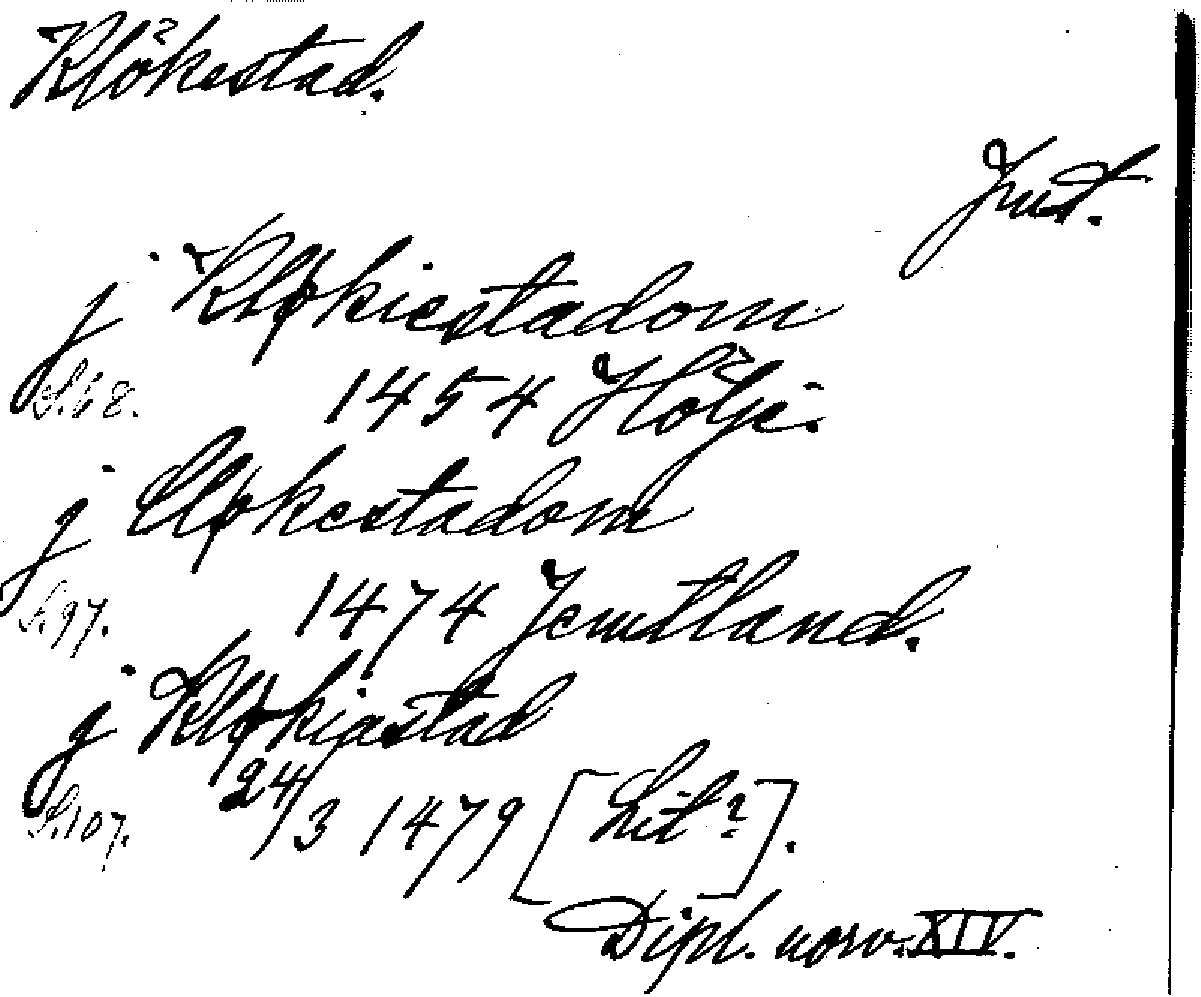 Klökestad.
Jmt.
j Kløkiestadom
S. 68. 1454 Hölje.
j Cløkestadom
S. 97. 1474 Jemtland.
j Kløkiastad
S. 107. 24/3 1479 [Lit?].
Dipl. norv. XIV.